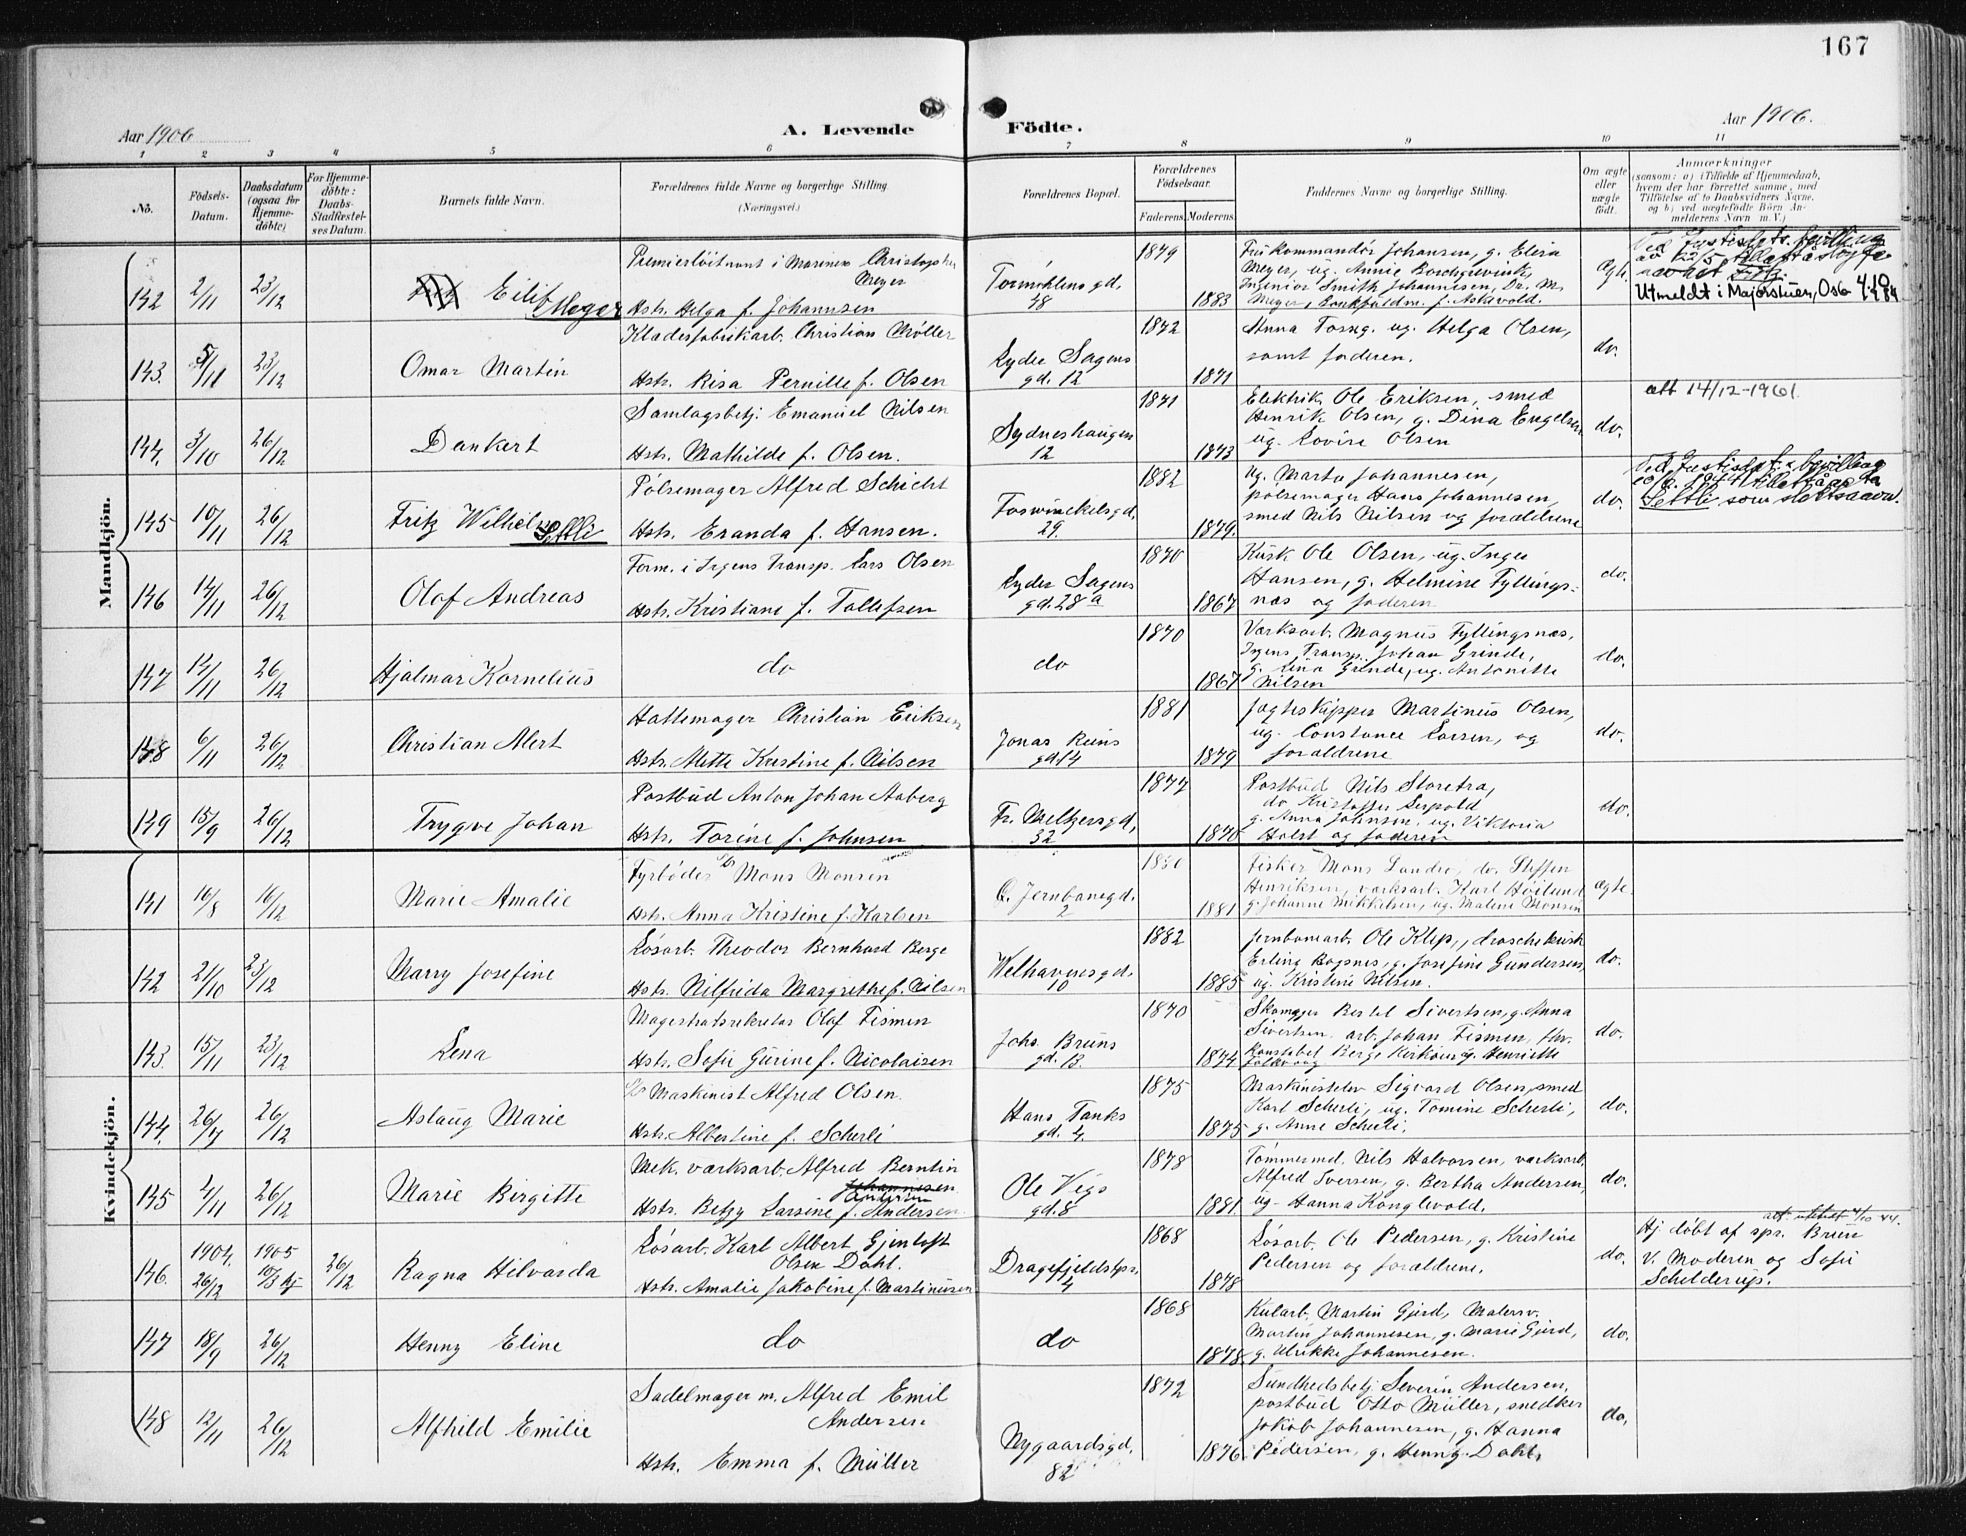 167
Aar 1906
A. Levende
Födte.
Aar 1906.
1 2 3 4 5 6 7 8 9 10 11
No.
Födsels-Datum.
Daabsdatum (ogsaa for Hjemme-döbte)
For Hjemme-döbte: Daabs-Stadfæstel-ses Datum.
Barnets fulde Navn.
Forældrenes fulde Navne og borgerlige Stilling.
(Næringsvei.)
Forældrenes Bopæl.
Forældrenes Födselsaar.
Faderens. Moderens.
Faddernes Navne og borgerlige Stilling.
Om ægte eller uægte födt.
Anmærkninger
(saasom: a) i Tilfælde af Hjemmedaab, hvem der har forrettet samme, med Tilföielse af to Daabsvidners Navne, og b) ved uægtefödte Börn An-melderens Navn m. V.)
Mandkjön.
142 2/11 23/12 Eilif Meyer
Premierlöitnant i Marinen Christopher Meyer
Hstr. Helga f. Johannsen
Tormöhlens gd. 48
1879 1883
Fru Kommandör Johansen, g. Elisa
Meyer, ug. Annie Borchgrevink,
Ingeniör Smith Johannesen, Dr. M.
Meyer, f. Askevold.
Ægte
Utmeldt i Majorstuen, Oslo
143. 5/11 23/12 Omar Martin
Kladesfabrikarb. Christian Möller
Hstr. Risa Pernille f. Olsen
Lyder Sagens gd. 12
1872 1871
Anna Torsg. ug. Helga Olsen,
samt faderen.
do.
att 14/12-1961.
144. 3/10 26/12 Dankert
Samlagsbetj. Emanuel Nilsen
Hstr. Mathilde f. Olsen.
Sydneshaugen 12
1871 1873
Elektrik. Ole Eriksen, smed
Henrik Olsen, g. Dina Engelsen,
ug. Lovise Olsen
do.
145 10/11 26/12 Fritz Wilhelm Settli
Pölsemager Alfred Schicht
Hstr. Eranda f. Hansen.
Torvinckelsgd. 29.
1882 1879.
ug. Marta Johannesen,
pölsemager Hans Johannesen,
smed Nils Nilsen og forældrene
do.
Settli som slektsnavn.
146 14/11 26/12 Olaf Andreas
Form. i Irgens Transp. Lars Olsen
Hstr. Kristiane f. Tollefsen
Lyder Sagens gd. 28 a
1870 1867
Kusk Ole Olsen, ug. Inger
Hansen, g. Helmine Fyllings-
næs og faderen
do.
147 14/11 26/12 Hjalmar Kornelius
do
do
1870 1867
Værksarb. Magnus Fyllingsnæs,
Irgens Transp. Johan Grinde,
g. Lina Grinde, ug. Antonette
Nilsen
do.
148 6/11 26/12 Christian Alert
Hattemager Christian Eriksen
Hstr. Mette Kristine f. Nilsen
Jonas Reins gd. 14
1881 1879
Jagtskipper Martinus Olsen,
ug. Constance Larsen, og
forældrene
do.
149 15/9 26/12 Trygve Johan
Postbud Anton Johan Aaberg
Hstr. Torine f. Johnsen
Fr. Meltzersgd. 32
1877 1870
Postbud Nils Storetra,
do Kristoffer Leopold
g. Anna Johnson, ug. Viktoria
Holst og faderen
do.
Kvindekjön.
141 16/8 16/12 Marie Amalie
Fyrböder Mons Monsen
Hstr. Anna Kristine f. Karlsen
Jernbanegd. 2
1880 1881
Fisker Mons Sandro, do. Steffen
Henriksen, værksarb. Karl Höilund
g. Johanne Mikkelsen, ug. Malene Monsen
ægte
142 21/10 23/12 Marry Josefine
Lösarb. Theodor Bernhard Berge
Hstr. Nilfrida Margrethe f. Nilsen
Welhavensgd. 10
1882 1885
Jernbanearb. Ole Klep, droschekusk
Erling Bogsnes, g. Josefine Gundersen,
ug. Kristine Nilsen.
do.
143. 15/11 23/12 Lena
Magistratssekretær Olaf Tismen
Hstr. Sofie Gurine f. Nicolaisen
Johs. Bruns gd. 13.
1870 1874
Skomager Bertel Sivertsen, g. Anna
Sivertsen, arb. Johan Tismen, fhv.
Konstabel Berge g. Henriette
do.
144. 26/7 26/12 Aslaug Marie
Maskinist Alfred Olsen.
Hstr. Albertine f. Scherli
Hans Tanks gd. 4
1875 1875
Maskinistelev Sigvard Olsen, smed
Karl Scherli, ug. Tomine Scherli,
g. Anne Scherli.
do.
145 4/11 26/12 Marie Birgitte
Mek. værksarb. Alfred Berntin
Johannesen
Hstr. Betzy Larsine f. Andersen
Ole Vigs gd. 8
1878 1881.
Tömmermd. Nils Halvorsen, værksarb.
Alfred Iversen, g. Bertha Andersen,
ug. Hanna Konglevold.
do.
146. 1904. 26/12 1905 10/3 hj 26/12 Ragna Hilvarda
Lösarb. Karl Albert Gjentoft
Olsen Dahl.
Hstr. Amalie Jakobine f. Martinusen
Dragefjeldstpr. 4
1868 1878
Lösarb. Ole Pedersen, g. Kristine
Pedersen og forældrene.
do.
Hj. döbt af spr. Bruun
v. Moderen og Sofie
Schilderup.
147 18/9 26/12 Henny Eline
do
do
1868 1878
Kularb. Martin Gjerd, Malersv.
Martin Johannesen, g. Marie Gjerd,
g. Ulrikke Johannesen.
do.
148 12/11 26/12 Alfhild Emilie
Sadelmager m. Alfred Emil
Andersen
Hstr. Emma f. Müller
Nygaardsgd. 82
1872 1876
Sundhedsbetj. Severin Andersen,
postbud Otto Müller, snedker
Jakob Johannesen, g. Hanna
Pedersen, g. Henny Dahl.
do.